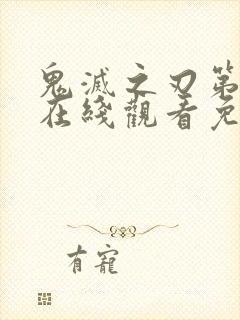 鬼滅之刃第
在綫觀看免
有寵